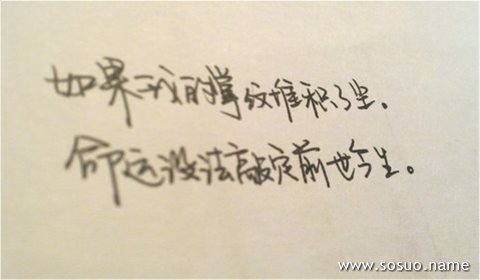 如果我的掌纹堆积了尘。
命运没法敲定前世今生。
www.sosuo.name